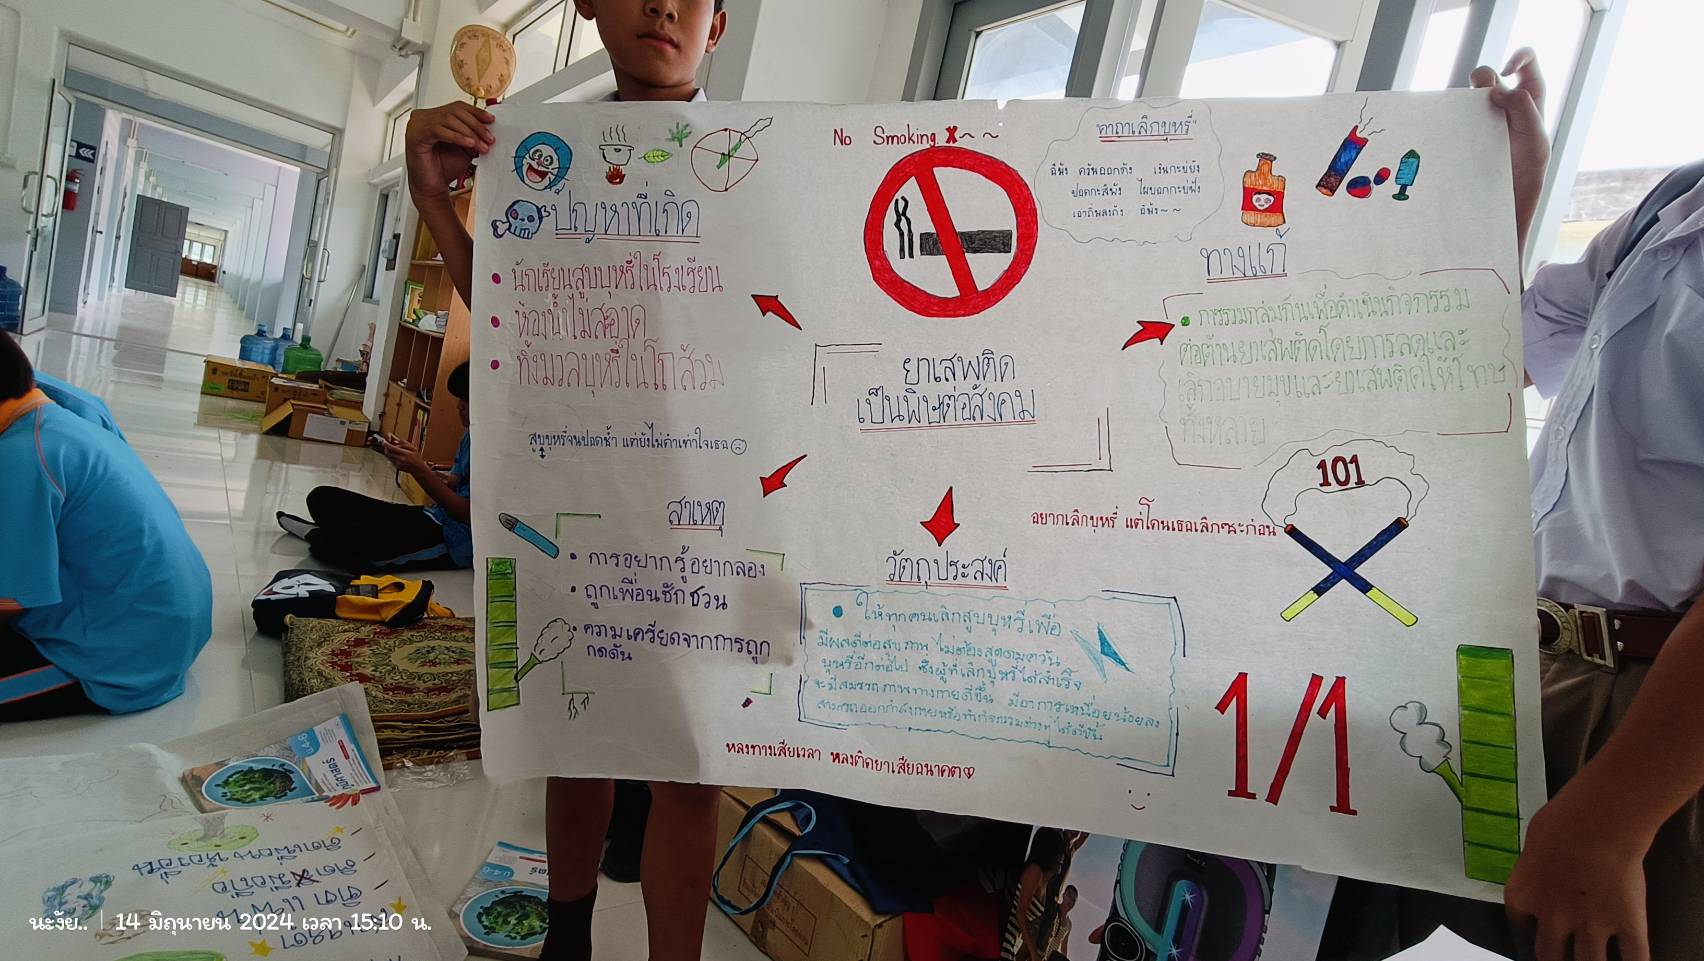 No Smoking X~~
"คาถาเลิกบุหรี่"
ควันออกดัง
ปัญหาที่เกิด
• นักเรียนสูบบุหรี่ในโรงเรียน
• ห้องน้ำไม่สะอาด
• ทิ้งมวลบุหรี่ในโถส้วม
สูบบุหรี่จนปอดช้ำ แต่ยังไม่ดำเท่าใจเธอ
ยาเสพติด
เป็นพิษต่อสังคม
ทางแก้
• การรวมกลุ่มกันเพื่อดำเนินกิจกรรม
ต่อต้านยาเสพติดโดยการลดและ
เลิกอบายมุขและยาเสพติดให้โทษ
ทั้งหลาย
101
อยากเลิกบุหรี่ แต่โดนเธอเลิกซะก่อน
สาเหตุ
• การอยากรู้อยากลอง
• ถูกเพื่อนชักชวน
• ความเครียดจากการถูก
กดดัน
วัตถุประสงค์
• ให้ทุกคนเลิกสูบบุหรี่เพื่อ
มีผลดีต่อสุขภาพ ไม่ต้องสูดดมควัน
บุหรี่อีกต่อไป ซึ่งผู้ที่เลิกบุหรี่ได้สำเร็จ
จะมีสมรรถภาพทางกายดีขึ้น มีอาการเหนื่อยน้อยลง
สามารถออกกำลังกายหรือทำกิจกรรมต่างๆ ได้ดีขึ้น
หลงทางเสียเวลา หลงติดยาเสียอนาคต
1/1
นะงัย.. | 14 มิถุนายน 2024 เวลา 15:10 น.